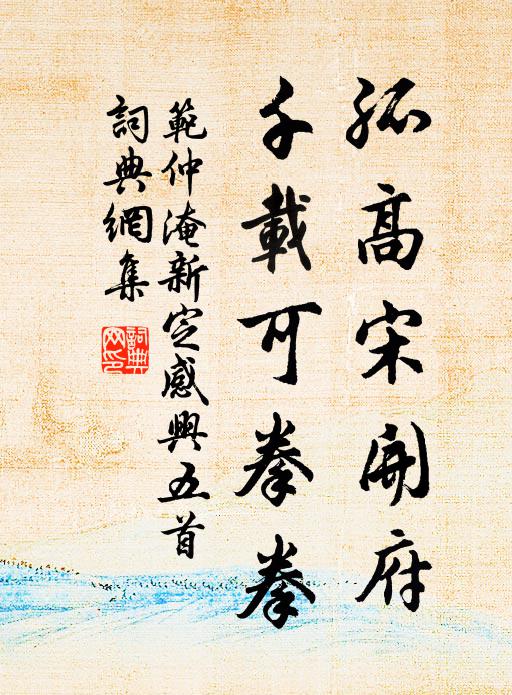 孤高宋開府
千載可拳拳
範仲淹新定感興五首
詞典網集
詞典網印